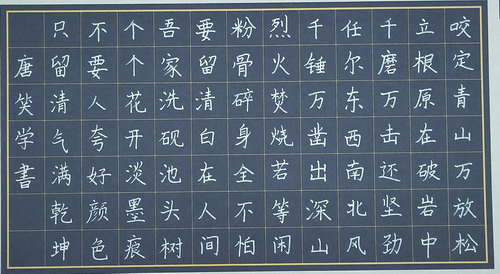 咬定青山万放松
立根原在破岩中
千磨万击还坚劲
任尔东西南北风
千锤万凿出深山
烈火焚烧若等闲
粉骨碎身全不怕
要留清白在人间
吾家洗砚池头树
个个花开淡墨痕
不要人夸好颜色
只留清气满乾坤
唐笑学書